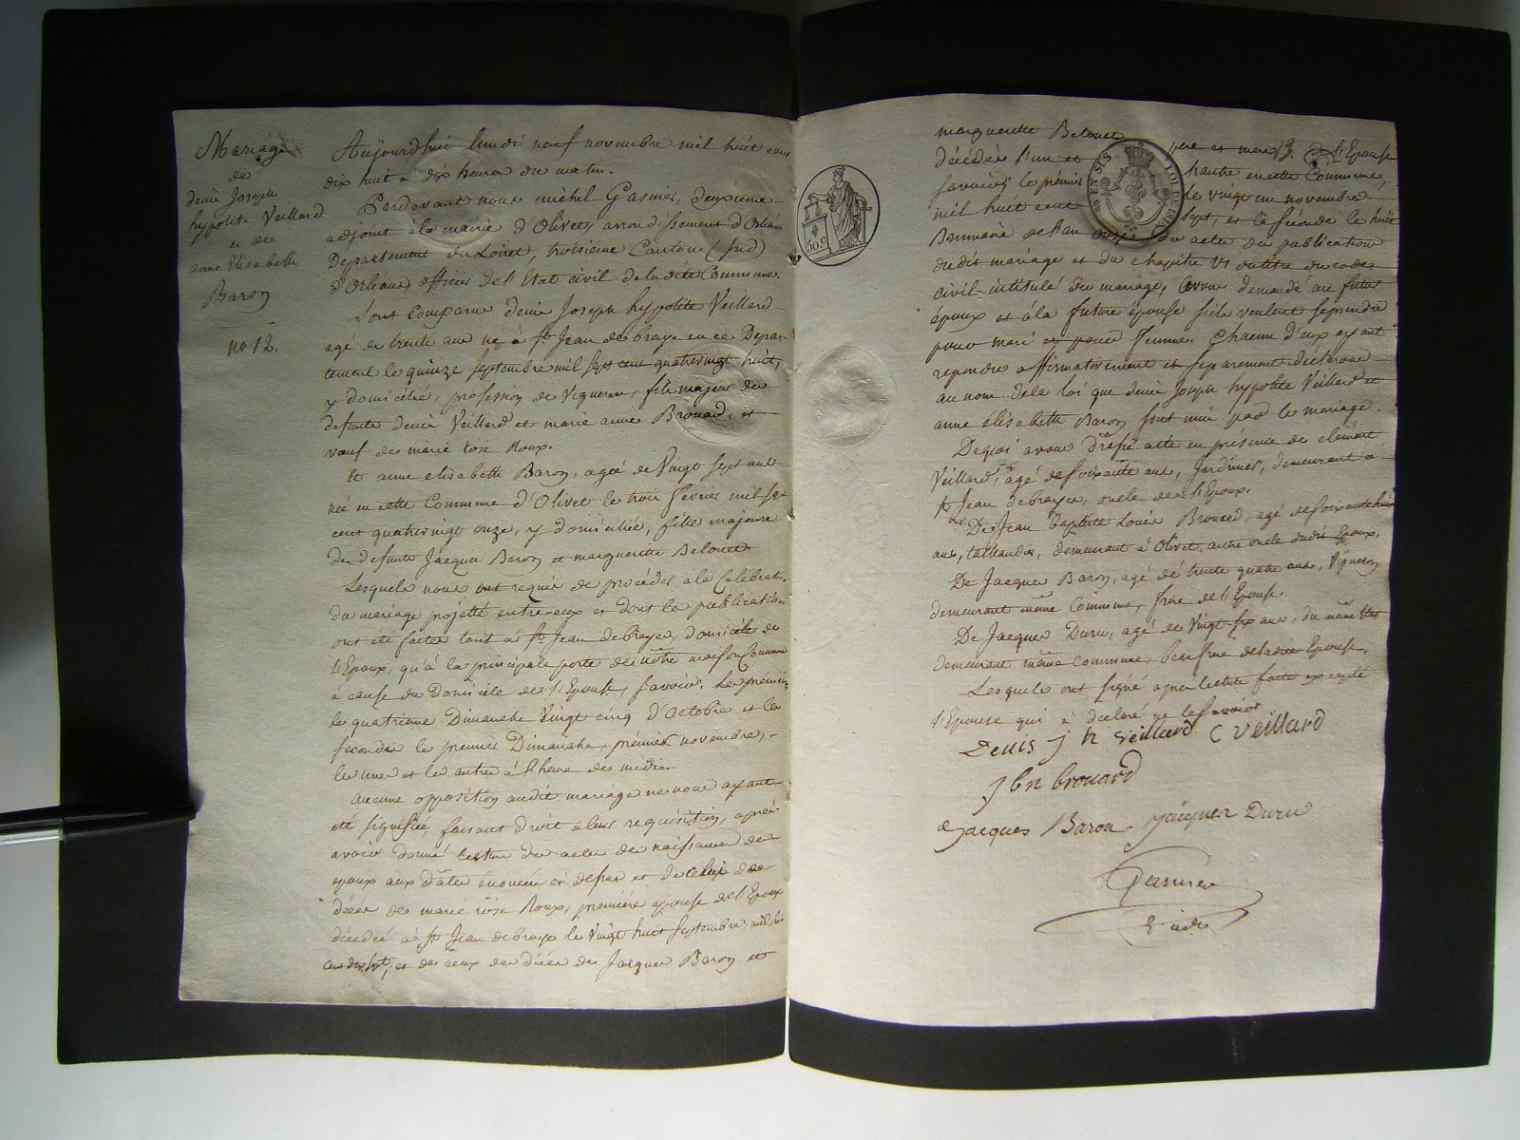 Mariage
de
denis Joseph
hypolite Veillard
et de
anne Elisabeth
Baron
no 12.
Aujourdhui lundi neuf novembre mil huit cent
dix huit à dix heures du matin.
Pardevant nous michel Garnier, deuxieme
adjoint à la mairie d'Olivet, arrondissement d'Orléans
Departement du Loiret, troisieme Canton (Sud)
d'Orleans officier de l'Etat civil de la dite Commune.
Sont comparus denis Joseph hypolite Veillard
agé de trente ans né à St Jean de braye en ce Depar-
tement le quinze septembre mil sept cent quatrevingt huit,
y domicilié, profession de Vigneron, fils majeur des
defunts denis Veillard et marie anne Brouard, et
veuf de marie rose Roux.
Et anne elisabeth Baron, agée de Vingt sept ans
née en cette Commune d'Olivet le trois fevrier mil sept
cent quatrevingt onze, y domiciliée, fille majeure
des defunts Jacques Baron et marguerite Belouet
Lesquels nous ont requis de procéder à la Célébration
du mariage projetté entre eux et dont les publications
ont été faites tant à St Jean de braye, domicile de
l'Epoux, qu'à la principale porte de notre maison Commune
à cause du Domicile de l'Epouse, savoir: les premieres
le quatrieme Dimanche Vingt cinq d'Octobre et les
secondes le premier Dimanche, premier novembre,
les unes et les autres à l'heure de midi.
Aucune opposition audit mariage ne nous ayant
été signifiée, faisant droit à leur requisition, après
avoir donné lecture des actes de naissance des
epoux aux dates énoncées ci dessus et de celui de
décès de marie rose Roux, premiere epouse de l'Epoux
décédée à St Jean de braye le Vingt huit septembre mil huit
cent dix sept, et de ceux de décès de Jacques Baron et
marguerite Belouet père et mere de l'Epouse
13.
décédés l'un et l'autre en cette Commune,
savoir: le premier le vingt un novembre
mil huit cent sept, et la seconde le huit
Brumaire de l'an onze, Des actes de publication
dudit mariage et du chapitre VI du titre du code
civil intitulé du mariage, avons demandé au futur
époux et à la future épouse s'ils veulent se prendre
pour mari et pour femme. Chacun d'eux ayant
repondu affirmativement et separement declarons
au nom de la loi que denis Joseph hypolite Veillard et
anne élisabeth Baron sont unis par le mariage.
De quoi avons dressé acte en présence de clément
Veillard, agé de soixante ans, Jardinier, demeurant à
St Jean de braye, oncle de l'Epoux.
De Jean Baptiste Louis Brouard, agé de soixante huit
ans, taillandier, demeurant à Olivet, autre oncle dudit Epoux,
De Jacques Baron, agé de trente quatre ans, Vigneron
demeurant même Commune, frère de l'Epouse.
De Jacques Duru, agé de Vingt six ans, du même Etat
demeurant même commune, beaufrere de ladite Epouse.
Lesquels ont signé après lecture faite excepté
l'Epouse qui a declaré ne le savoir
Denis j h veillard C Veillard
j b n brouard
Jacques Baron. Jacques Duru
Garnier